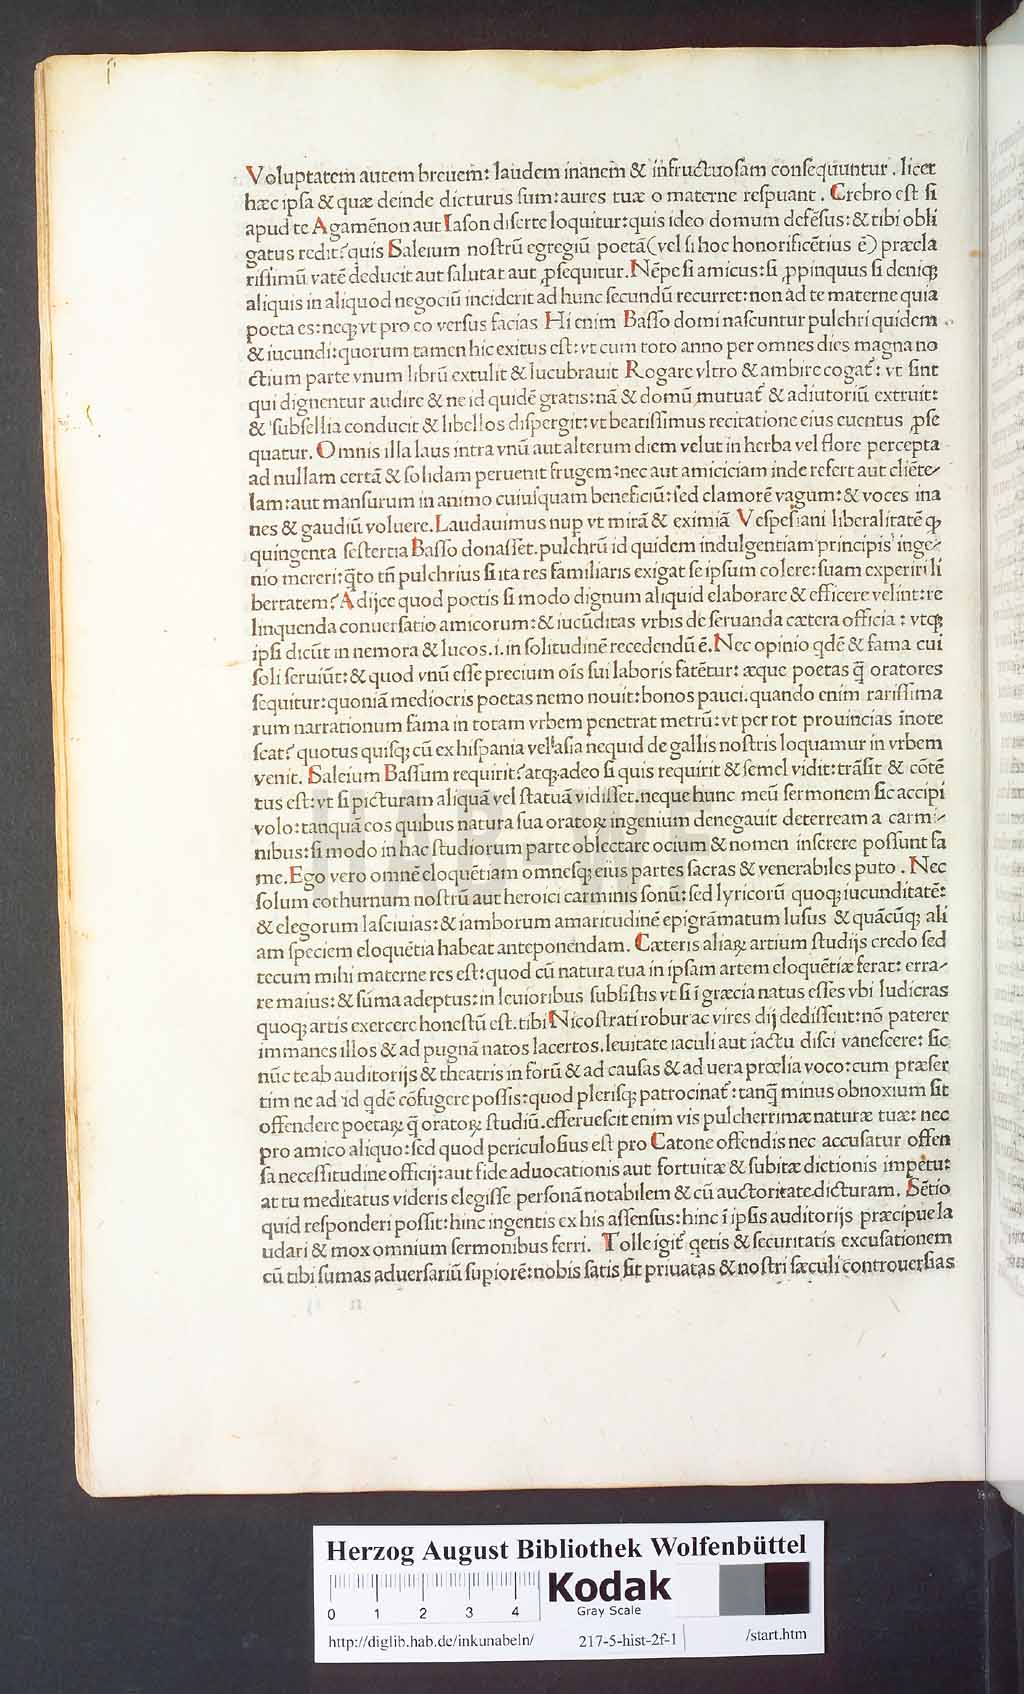 Voluptatem autem breuem: laudem inanem & infructuosam consequuntur . licet
hæc ipsa & quæ deinde dicturus sum: aures tuæ o materne respuant . Crebro est si
apud te Agamēnon aut Iason diserte loquitur: quis ideo domum defēsus: & tibi obli
gatus redit? quis Saleium nostrū egregiū poetā (vel si hoc honorificētius ē) præcla
rissimū vatē deducit aut salutat aut ꝓsequitur. Nēpe si amicus: si ꝓpinquus si deniqꝫ
aliquis in aliquod negociū inciderit ad hunc secundū recurret: non ad te materne quia
poeta es: neqꝫ vt pro eo versus facias Hi enim Basso domi nascuntur pulchri quidem
& iucundi: quorum tamen hic exitus est: vt cum toto anno per omnes dies magna no
ctium parte vnum librū extulit & lucubrauit Rogare vltro & ambire cogat᷑: vt sint
qui dignentur audire & ne id quidē gratis: nā & domū mutuat᷑ & adiutoriū extruit:
& subsellia conducit & libellos dispergit: vt beatissimus recitatione eius euentus ꝓse
quatur. Omnis illa laus intra vnū aut alterum diem velut in herba vel flore percepta
ad nullam certā & solidam peruenit frugem: nec aut amiciciam inde refert aut cliēte⸗
lam: aut mansurum in animo cuiusquam beneficiū: sed clamorē vagum: & voces ina
nes & gaudiū voluere. Laudauimus nup vt mirā & eximiā Vespesiani liberalitatē qꝫ
quingenta sestertia Basso donasset. pulchrū id quidem indulgentiam principis inge⸗
nio mereri: q̄to tn̄ pulchrius si ita res familiaris exigat se ipsum colere: suam experiri li
bertatem? Adijce quod poetis si modo dignum aliquid elaborare & efficere velint: re
linquenda conuersatio amicorum: & iucūditas vrbis de seruanda cætera officia: vtqꝫ
ipsi dicūt in nemora & lucos .i. in solitudinē recedendū ē. Nec opinio qdē & fama cui
soli seruiūt: & quod vnū esse precium oīs sui laboris fatētur: æque poetas q̄ oratores
sequitur: quoniā mediocris poetas nemo nouit: bonos pauci. quando enim rarissima
rum narrationum fama in totam vrbem penetrat metrū: vt per tot prouincias īnote
scat? quotus quisqꝫ cū ex hispania vel asia nequid de gallis nostris loquamur in vrbem
venit. Saleium Bassum requirit? atqꝫ adeo si quis requirit & semel vidit: trāsit & cōtē
tus est: vt si picturam aliquā vel statuā vidisset. neque hunc meū sermonem sic accipi
volo: tanquā eos quibus natura sua oratoꝝ ingenium denegauit deterream a carmi⸗
nibus: si modo in hac studiorum parte oblectare ocium & nomen inserere possunt fa
me. Ego vero omnē eloquētiam omnesqꝫ eius partes sacras & venerabiles puto . Nec
solum cothurnum nostrū aut heroici carminis sonū: sed lyricorū quoqꝫ iucunditatē:
& elegorum lasciuias: & iamborum amaritudinē epigrāmatum lusus & quācūqꝫ ali
am speciem eloquētia habeat anteponendam. Cæteris aliaꝝ artium studijs credo sed
tecum mihi materne res est: quod cū natura tua in ipsam artem eloquētiæ ferat: erra⸗
re maius: & sūma adeptus: in leuioribus subsistis vt si ī græcia natus esses vbi ludicras
quoqꝫ artis exercere honestū est. tibi Nicostrati robur ac vires dij dedissent: nō paterer
immanes illos & ad pugnā natos lacertos. leuitate iaculi aut iactu disci vanescere: sic
nūc te ab auditorijs & theatris in forū & ad causas & ad uera prœlia voco: cum præser
tim ne ad id qdē cōfugere possis: quod plerisqꝫ patrocinat᷑: tanq̄ minus obnoxium sit
offendere poetaꝝ q̄ oratoꝝ studiū. efferuescit enim vis pulchertimæ naturæ tuæ: nec
pro amico aliquo: sed quod periculosius est pro Catone offendis nec accusatur offen
sa necessitudine officij: aut fide aduocationis aut fortuitæ & subitæ dictionis impetu:
at tu meditatus videris elegisse personā notabilem & cū auctoritate dicturam. Sētio
quid responderi possit: hinc ingentis ex his assensus: hinc ī ipsis auditorijs præcipue la
udari & mox omnium sermonibus ferri. Tolle igit᷑ qetis & securitatis excusationem
cū tibi sumas aduersariū supiorē: nobis satis sit priuatas & nostri sæculi controuersias
HAB-WF
Herzog August Bibliothek Wolfenbüttel
0 1 2 3 4
Kodak
Gray Scale
http://diglib.hab.de/inkunabeln/ 217-5-hist-2f-1 /start.htm